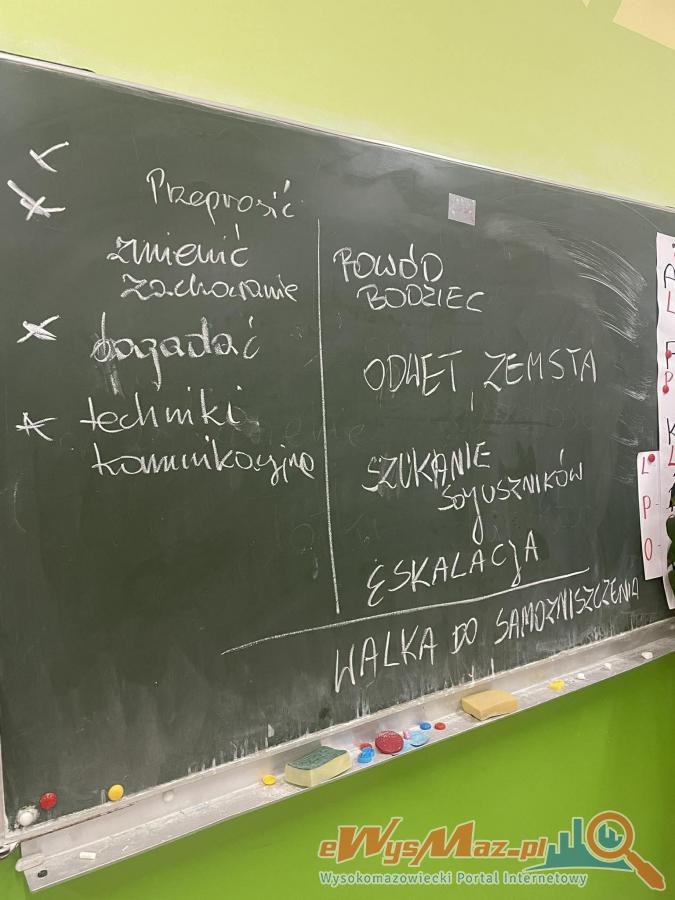 Przeprosić
zmienić
zachowanie
dogadać
techniki
komunikacyjne
POWÓD
BODZIEC
ODWET, ZEMSTA
SZUKANIE
sojuszników
ESKALACJA
WALKA DO SAMOZNISZCZENIA
A
L
F
P
K
L
L
P
O
eWysMaz.pl
Wysokomazowiecki Portal Internetowy